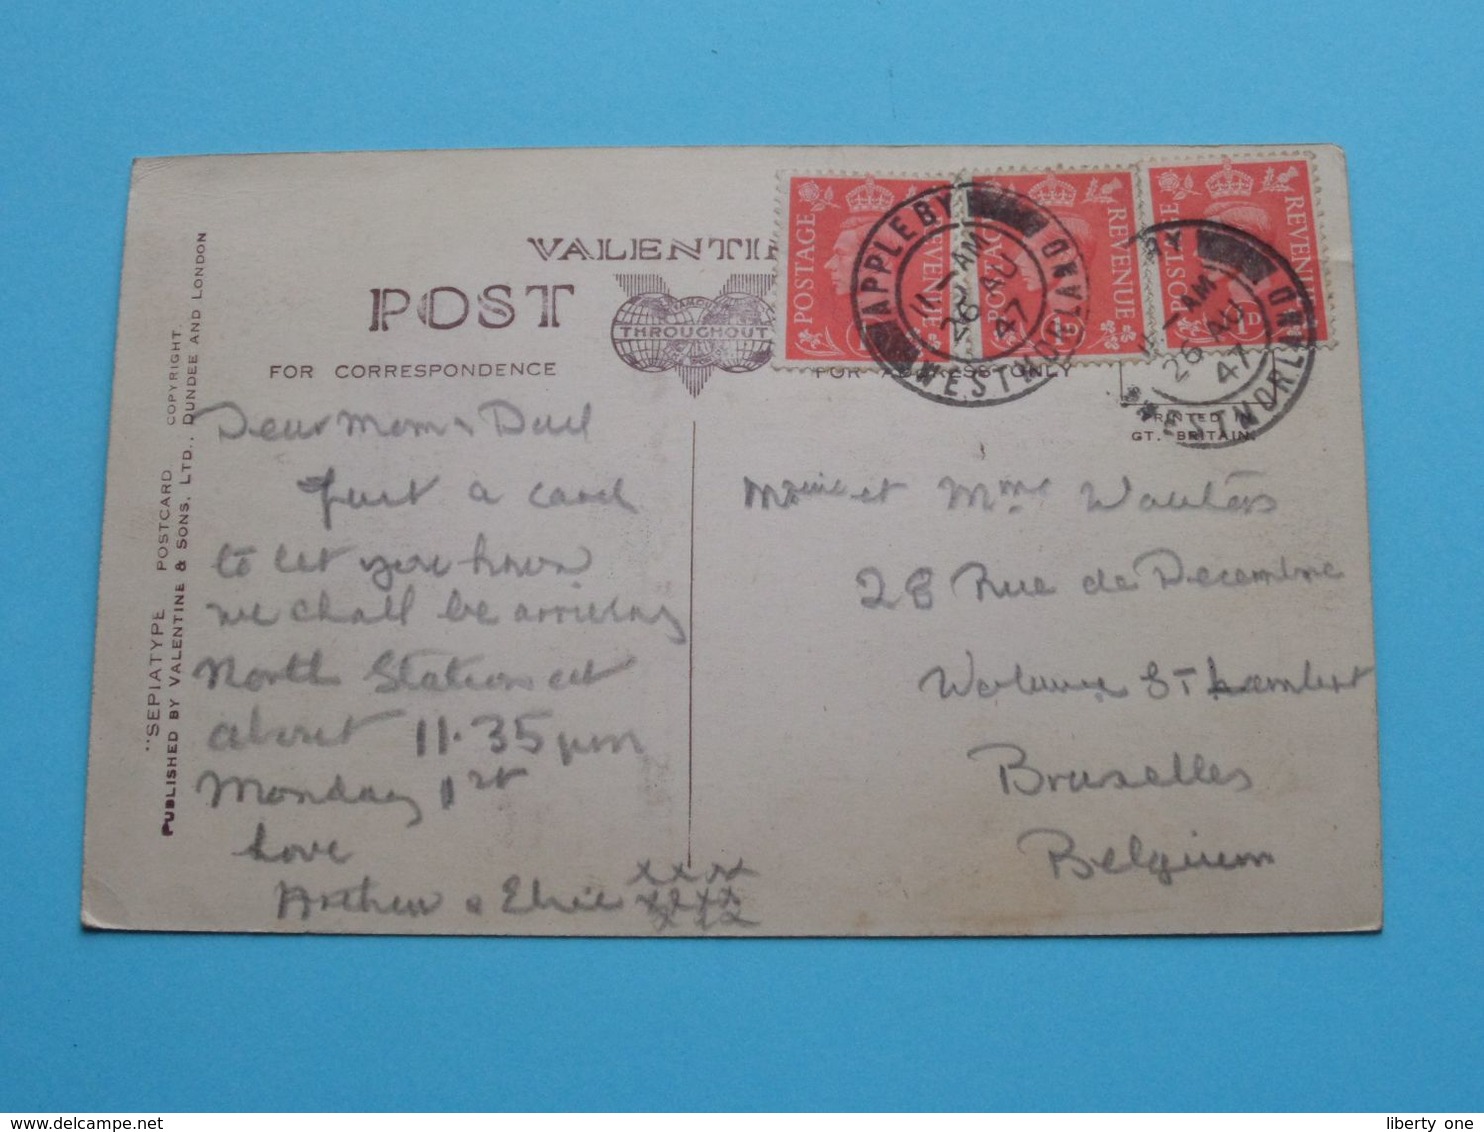 VALENTI
POST
THROUGHOUT
FOR CORRESPONDENCE
FOR ADDRESS ONLY
PRINTED IN
GT. BRITAIN.
POSTAGE REVENUE
1D
POSTAGE REVENUE
1D
POSTAGE REVENUE
1D
APPLEBY
11-AM
26 AU
47
WESTMORLAND
BY
11-AM
26 AU
47
WESTMORLAND
"SEPIATYPE POSTCARD COPYRIGHT.
PUBLISHED BY VALENTINE & SONS, LTD., DUNDEE AND LONDON
Dear Mom & Dad
Just a card
to let you know
we shall be arriving
North Station at
about 11.35 pm
Monday 1st
Love
Arthur & Elsie xxxx
xxxx
xxxx
et Mme Wauters
28 Rue de Decembre
St Lambert
Bruxelles
Belgium
liberty one